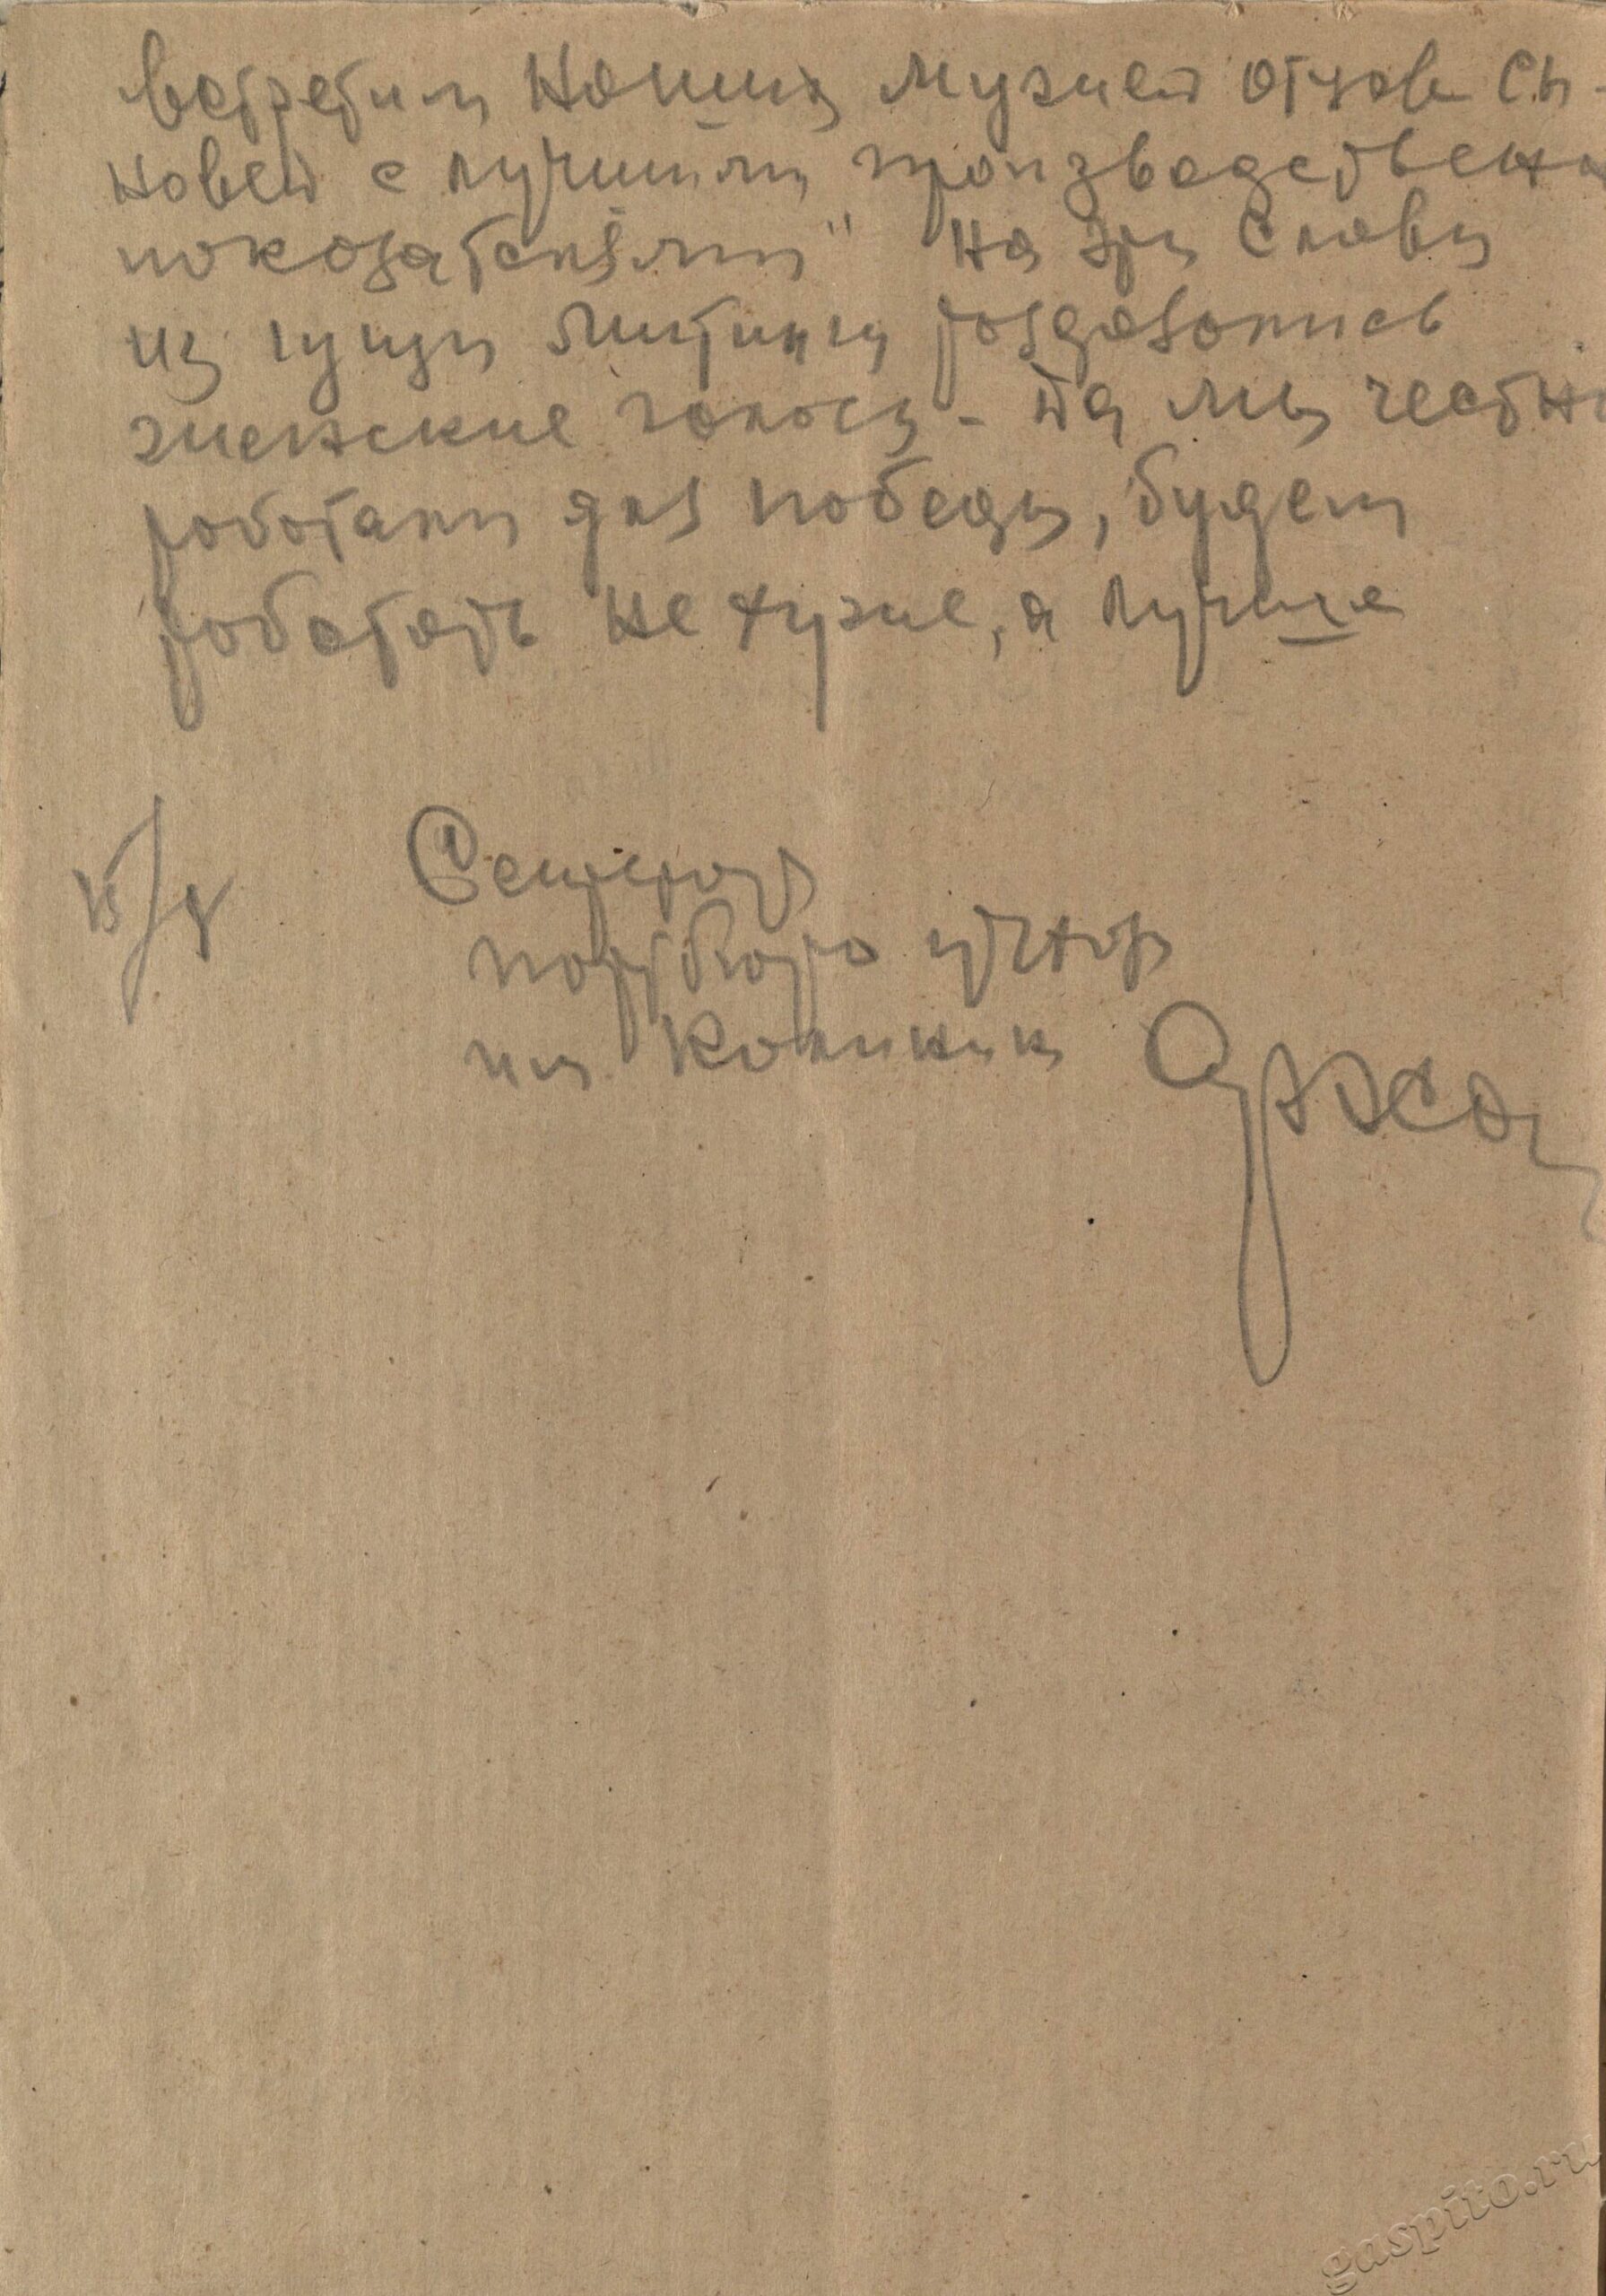 встретим наших мужей отцов сы-
новей с лучшими производствен
показателями" на эти слова
из гущи митинга раздавались
женские голоса - Да мы честн
работали для победы, будем
работать не хуже, а лучше
Секретарь
партбюро
им Калинина
gaspito.ru